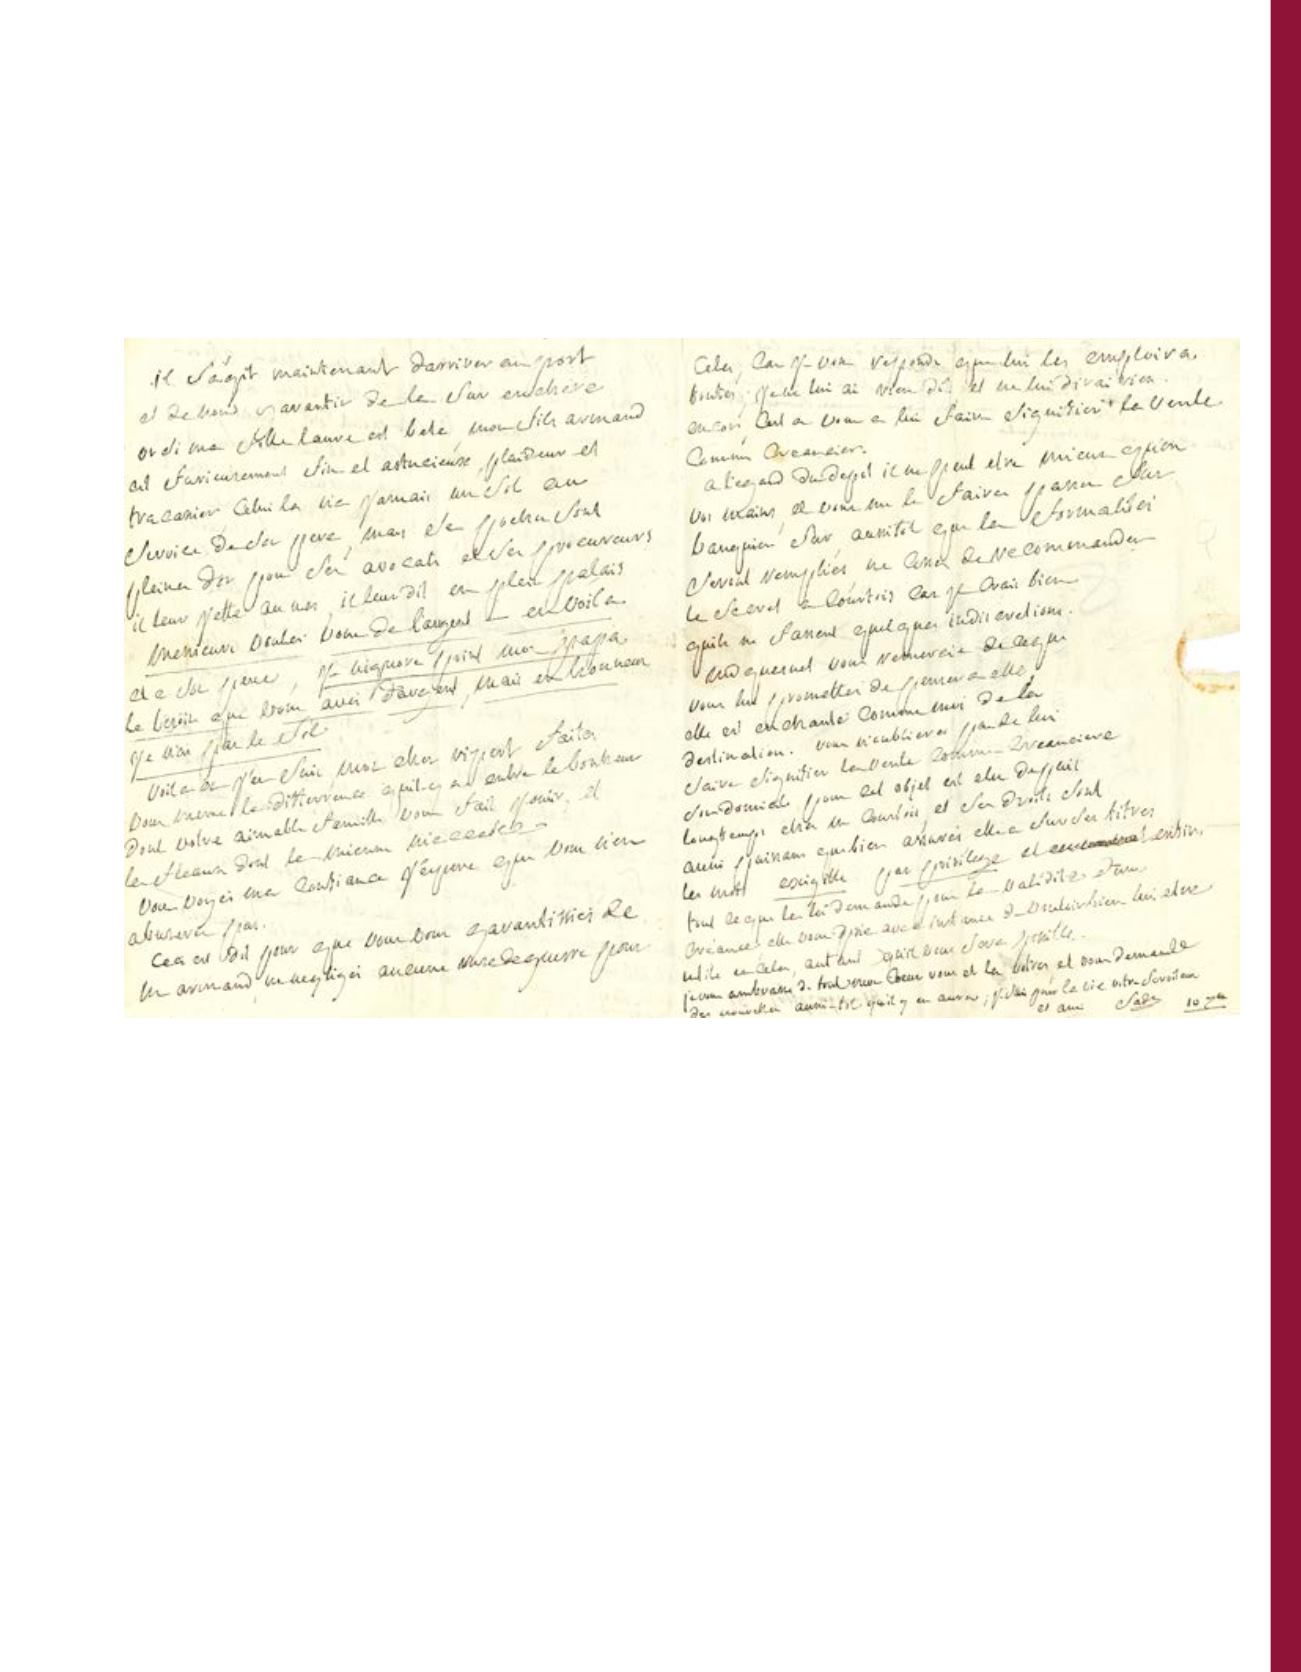 il s'agit maintenant d'arriver au port
et de vous garantir de la sur enchere
or si ma fille laure est bete, mon fils armand
est furieusement fin et astucieux, plaideur et
tracassier celui la n'a jamais un sol au
service de son pere, mais ses poches sont
pleines d'or pour ses avocats et ses procureurs
il leur jette au nes, il leur dit en plein palais
messieurs voules vous de l'argent — en voila
et a son pere, je n'ignore point mon papa
le besoin que vous avés d'argent, mais en honneur
je n'ai pas le sol
voila ou j'en suis mon cher   faites
vous meme la difference qu'il y a entre le bonheur
dont votre aimable famille vous fait jouir, et
les fleaux dont la mienne
vous voyés ma confiance j'espere que vous n'en
abuseres pas.
Ceci est dit pour que vous vous garantissiés de
mr armand, ne negligés aucune ruse de guerre pour
cela, car je vous reponds que lui les emploira
toutes; je ne lui ai rien dit et ne lui dirai rien
encore c'est a vous a lui faire signifier la vente
comme creancier.
a l'egard du depot il ne peut etre mieux qu'en
vos mains, et vous me le faires passer sur
banquier sur aussitot que les formalités
seront remplies ne cessés de recommander
le secret a Courtois car je crais bien
qu'ils ne fassent quelques indiscretions.
md quesnet vous remercie de ce que
vous lui promettés de penser a elle
elle est enchantée comme moi de la
destination. vous n'oublieres pas de lui
faire signifier la vente comme creanciere
son domicile pour cet objet est elu depuis
longtemps chez mr Courtois et ses droits sont
aussi puissans que bien assurés elle a sur ses titres
les mots exigible par privilege et enfin
tout ce que la loi demande pour la validité d'une
créance elle vous prie avec instance de vouloir bien lui etre
utile en cela, autant qu'il vous sera possible.
je vous embrasse de tout mon coeur vous et les votres et vous demande
des nouvelles aussi-tot qu'il y en aura; je suis pour la vie votre serviteur
et ami Sade 10